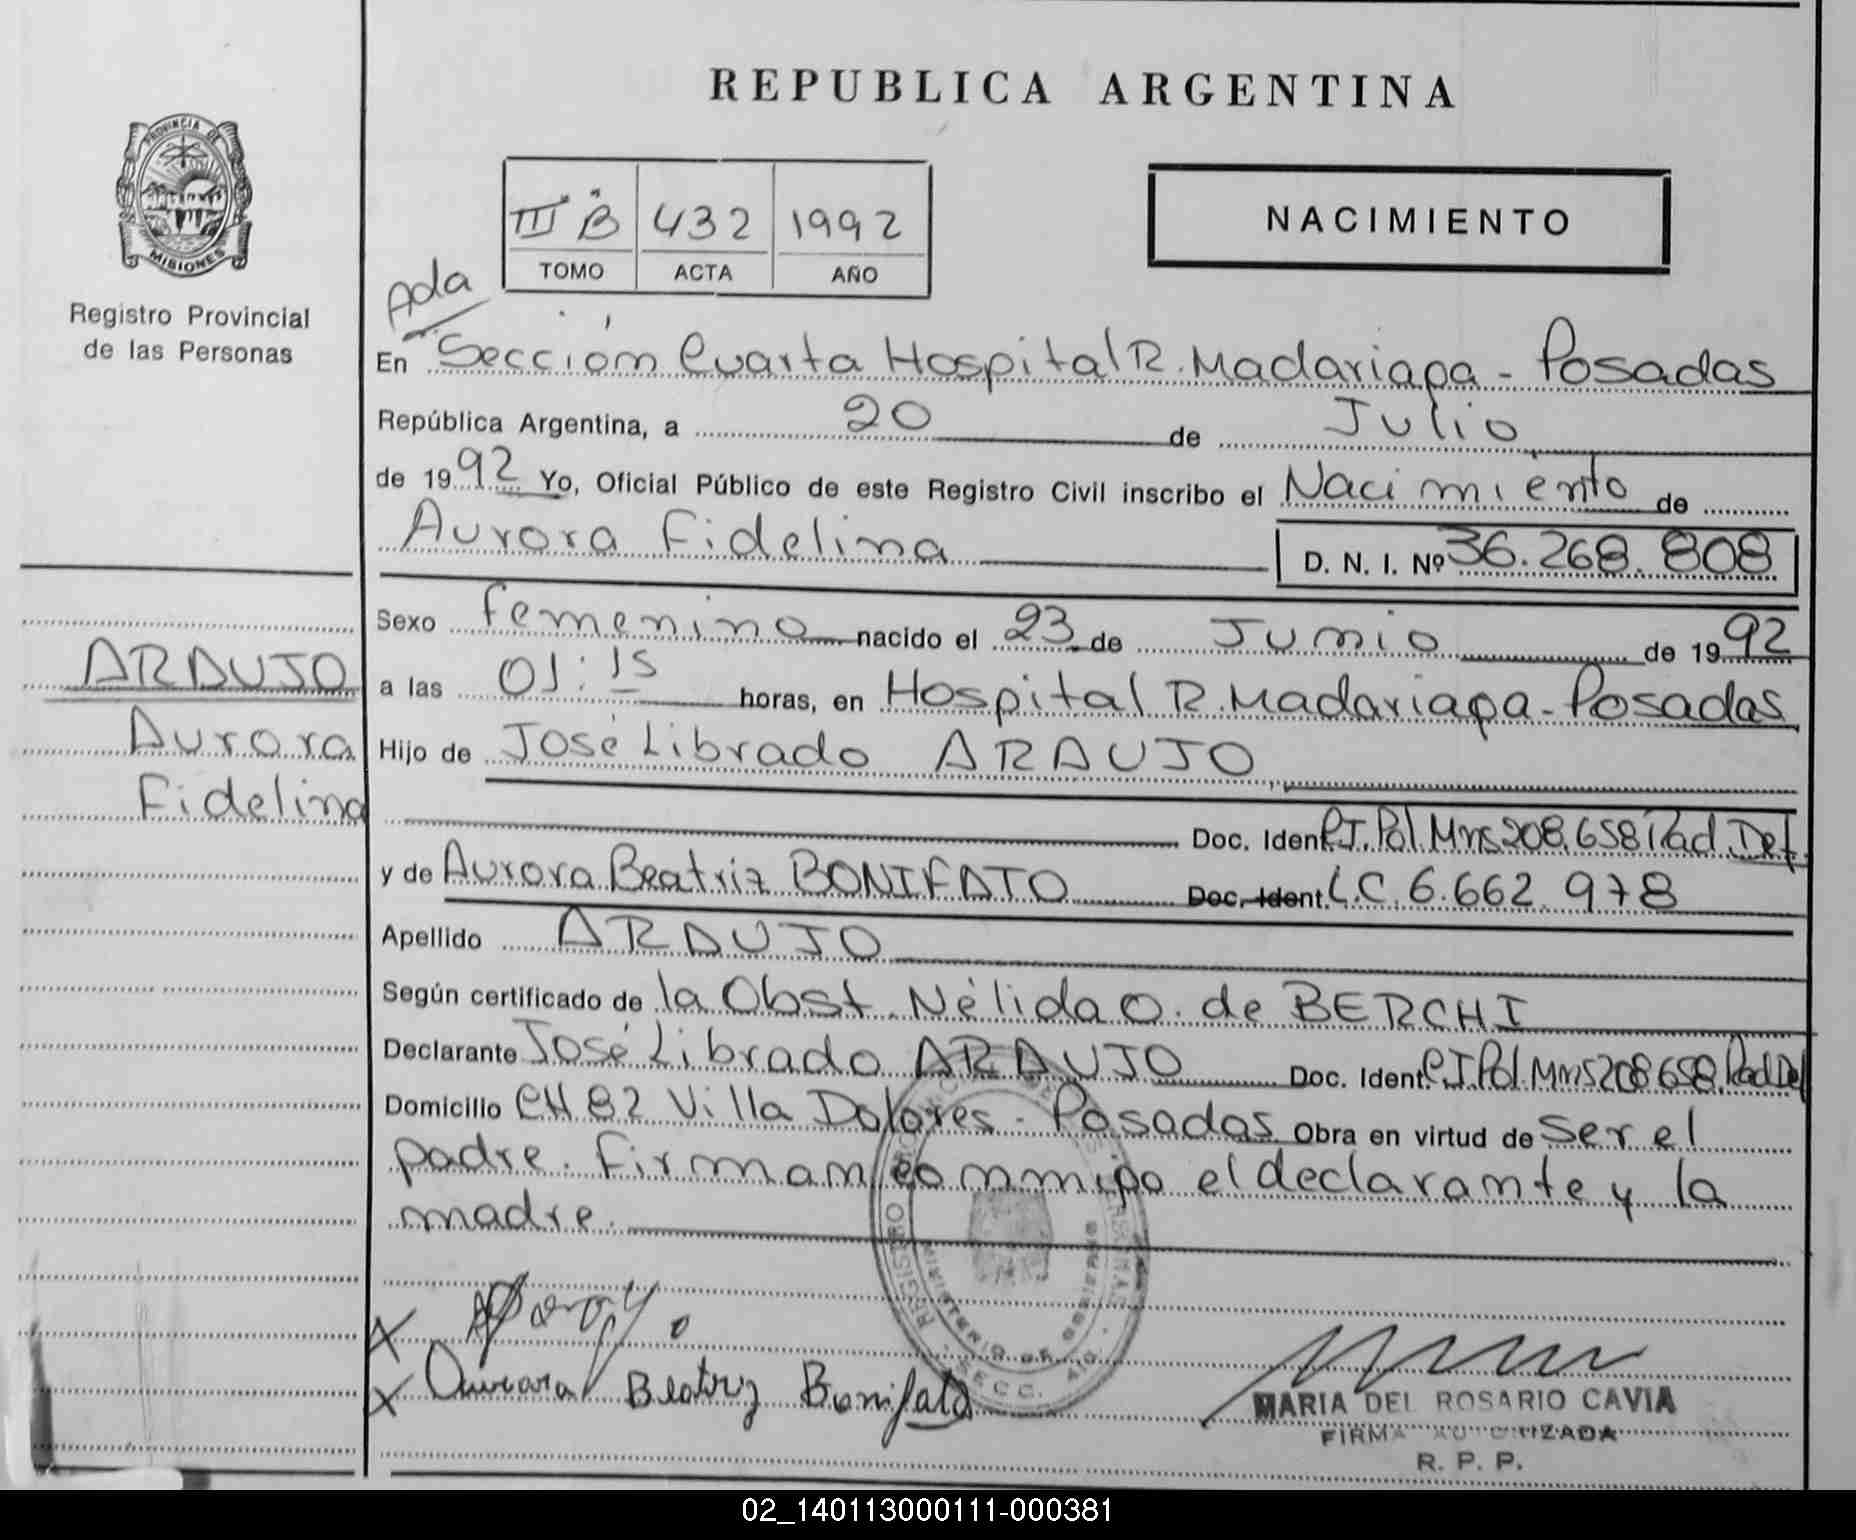 REPUBLICA ARGENTINA
PROVINCIA DE
MISIONES
Registro Provincial
de las Personas
III B 432 1992
TOMO ACTA AÑO
NACIMIENTO
Ada
En Sección Cuarta Hospital R. Madariaga - Posadas
República Argentina, a 20 de Julio
de 1992 Yo, Oficial Público de este Registro Civil inscribo el Nacimiento de
Aurora Fidelina D. N. I. Nº 36.268.808
Sexo femenino nacido el 23 de Junio de 1992
ARAUJO
Aurora
Fidelina
a las 01:15 horas, en Hospital R. Madariaga - Posadas
Hijo de José Librado ARAUJO
Doc. Ident. C.I. Pol. Mns 208.658 Pad. Def.
y de Aurora Beatriz BONIFATO Doc. Ident. L.C. 6.662.978
Apellido ARAUJO
Según certificado de la Obst. Nélida O. de BERCHI
Declarante José Librado ARAUJO Doc. Ident. C.I. Pol. Mns 208.658. Pad. Def
Domicilio CH 82 Villa Dolores - Posadas Obra en virtud de ser el
padre. Firman conmigo el declarante y la
madre.
X
X Aurora Beatriz Bonifato
REGISTRO
MINISTERIO DE GOBIERNO
SECC.
MARIA DEL ROSARIO CAVIA
FIRMA AUTORIZADA
R. P. P.
02_140113000111-000381